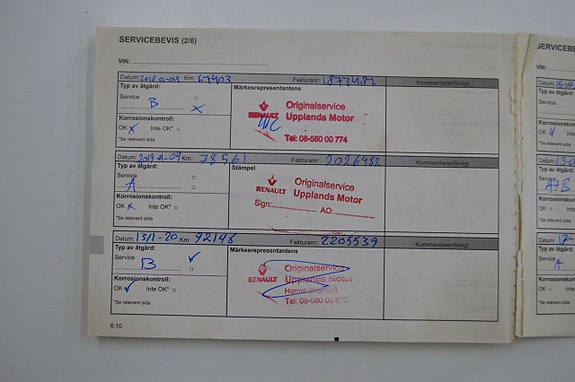 SERVICEBEVIS (2/6)
VIN:
Datum: Km: 67403 Fakturanr: 1873481 Kommentarer/övrigt
Typ av åtgärd: Märkesrepresentantens
Service
B
Originalservice
RENAULT Upplands Motor
Korrosionskontroll:
OK Inte OK*
Tel: 08-580 00 774
*Se relevant sida
Datum: Km: 78561 Fakturanr: 2026982 Kommentarer/övrigt
Typ av åtgärd: Stämpel
Service
A
Originalservice
RENAULT Upplands Motor
Korrosionskontroll:
Sign: AO:
OK Inte OK*
*Se relevant sida
Datum: 13/1-20 Km: 92146 Fakturanr: 2205539 Kommentarer/övrigt
Typ av åtgärd: Märkesrepresentantens
Service
B
Originalservice
RENAULT Upplands Motor
Hamid
Korrosionskontroll:
OK Inte OK*
Tel: 08-580 00
*Se relevant sida
6.10
VIN:
Datum:
Typ av åtgärd:
Service
Korrosionskontroll:
OK
*Se relevant sida
Datum:
Typ av åtgärd:
Service
A+S
Korrosionskontroll:
OK
*Se relevant sida
Datum:
Typ av åtgärd:
Service
A
Korrosionskontroll:
OK
*Se relevant sida